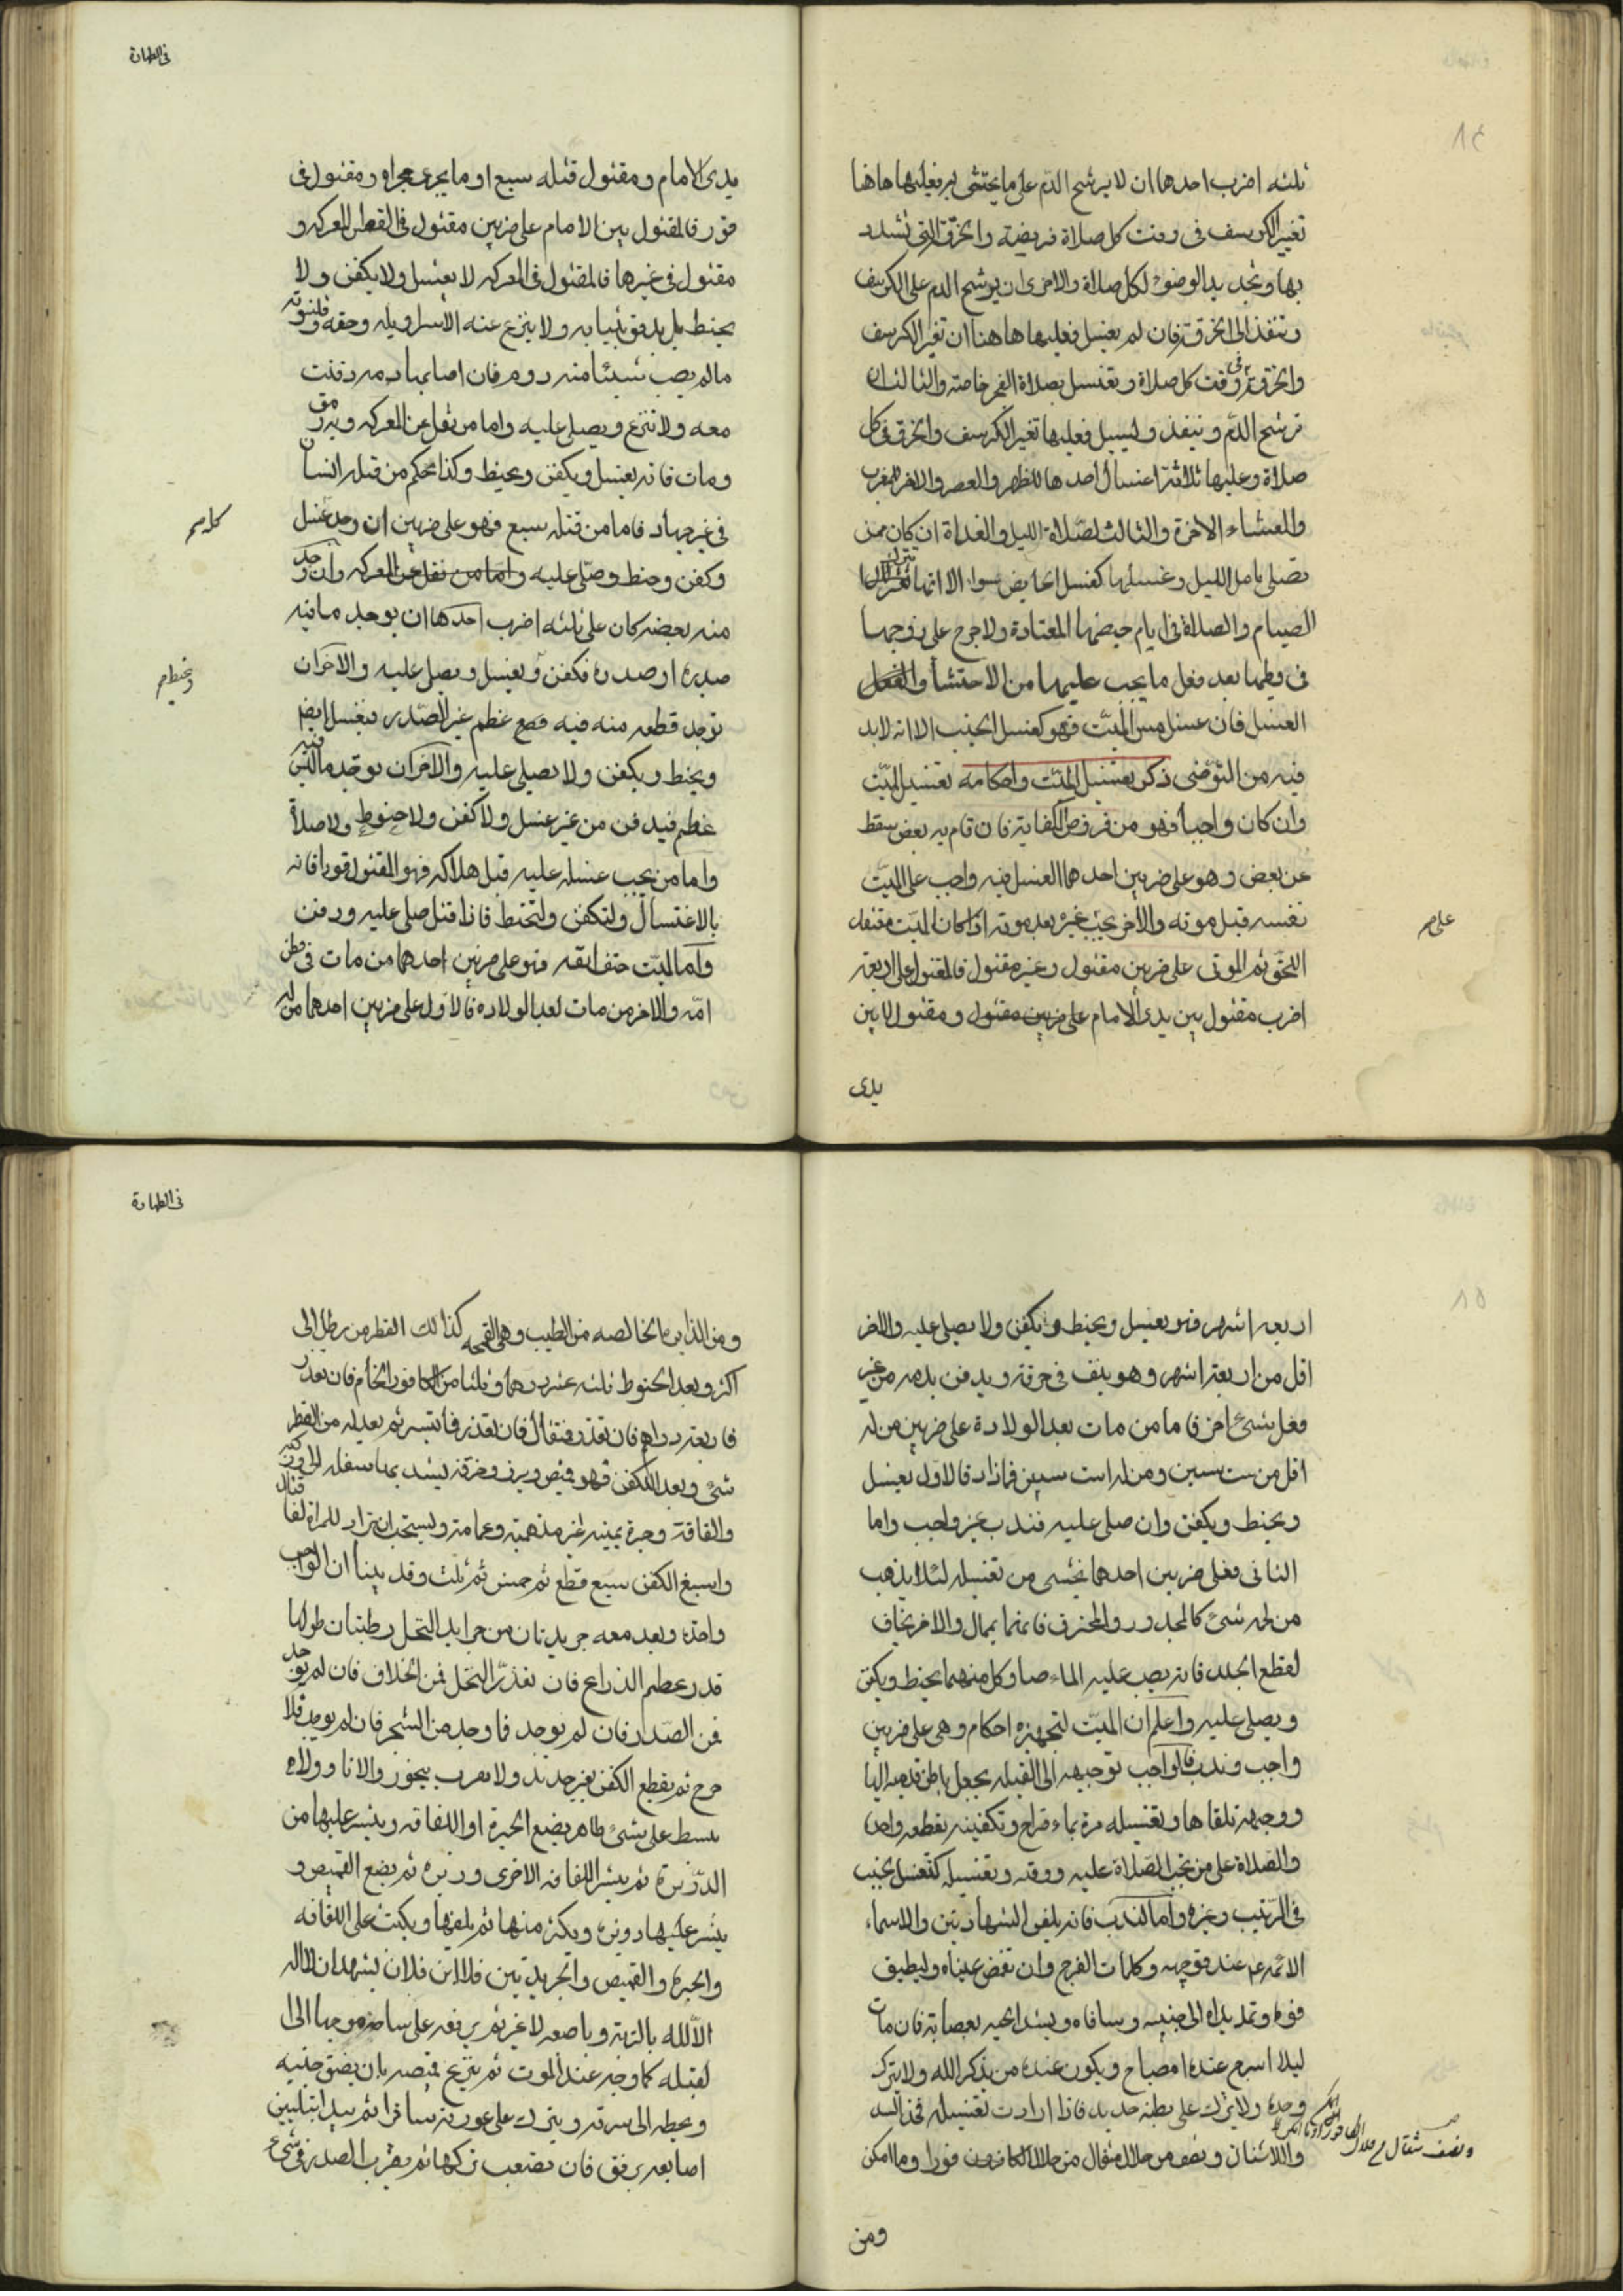 ثلثه اضرب احدها ان لا يرشح الدم على ما يحتشى به فعليها هاهنا
تغيير الكرسف فى وقت كل صلاة فريضة والخرق التى تشدد
بها وتجديد الوضوء لكل صلاة والاخرى ان يرشح الدم على الكرسف
وتنفذ الى الخرقة فان لم يغسل فعليها هاهنا ان تغير الكرسف
والخرقة فى وقت كل صلاة وتغتسل بصلاة الفجر خاصة والثالث ان
ترشح الدم وينفذ وليسيل فعليها تغيير الكرسف والخرق فى كل
صلاة وعليها ثلاثة اغسال احدها للظهر والعصر والاخر للمغرب
والعشاء الاخرة والثالث لصلاة الليل والغداة ان كان ممن
تصلى بامل الليل وغسلها كغسل الحايض سوا الا انها تترك
الصيام والصلاة فى ايام حيضها المعتادة ولا حرج على زوجها
فى وطيها بعد فعل ما يجب عليها من الاحتشا والغسل
الغسل فان غسل مس الميت فهو كغسل الجنب الا انه لا بد
فيه من التوضى ذكر تغسيل الميت واحكامه تغسيل الميت
وان كان واجبا فهو من فروض الكفاية فان قام به بعض سقط
عن بعض وهو على ضربين احدهما الغسل فيه واجب على الميت
نفسه قبل موته والآخر يجب غيره بعد موته اذا كان الميت معتقد
على صر
الحق ثم الموتى على ضربين مقتول وغير مقتول فالمقتول على اربعة
اضرب مقتول بين يدى الامام على ضربين مقتول ومقتول لا بين
يدى
فى الطهارة
يدى الامام ومقتول قتله سبع او ما يجرى مجراه ومقتول فى
قود فالمقتول بين الامام على ضربين مقتول فى المعركه و
مقتول فى غيرها فالمقتول فى المعركه لا يغسل ولا يكفن ولا
يحنط بل يدفن بثيابه ولا ينزع عنه الا سراويله وخفه وقلنسوته
مالم يصب شيئا منه دوم فان اصابها دمه دفنت
معه ولا تنزع ويصلى عليه واما من نقل عن المعركه وبه رمق
ومات فانه يغسل ويكفن ويحنط وكذا حكم من قتله انسان
فى غير جهاد فاما من قتله سبع فهو على ضربين ان وجد غسل
كله صر
وكفن وحنط وصلى عليه واما من نقل عن المعركه وان وجد
منه بعضه كان على ثلثه اضرب احدها ان يوجد ما فيه
صدره او صدره فكفن ويغسل ويصلى عليه والاخر ان
وتحنط صر
توجد قطعه منه فيه مع عظم غير الصدر فيغسل ايضا
ويحنط ويكفن ولا يصلى عليه والآخر ان توجد ما ليس فيه
عظم فيدفن من غير غسل ولا كفن ولا حنوط ولا صلاة
واما من يجب غسله عليه قبل هلاكه فهو المقتول قودا فانه
بالاغتسال والتكفن والتحنط فاذا قتل صلى عليه ودفن
واما الميت حتف انفه فهو على ضربين احدهما من مات فى بطن
امه والاخر من مات بعد الولاده فالاول على ضربين احدهما من له
اربعه اشهر فهو يغسل ويحنط ويكفن ولا يصلى عليه والاخر
اقل من اربعة اشهر وهو يلف فى خرقة ويدفن بدمه من غير
فعل شئ اخر فاما من مات بعد الولادة على ضربين من له
اقل من ست سنين ومن له ست سنين فما زاد فالاول يغسل
ويحنط ويكفن وان صلى عليه فندب غير واجب واما
الثانى فعلى ضربين احدهما يخشى من تغسيله لئلا يذهب
من لحمه شئ كالمجدور والمحترق فانهما يمال والاخر يخاف
لقطع الجلد فانه يصب عليه الماء صبا وكل منهما يحنط ويكفن
ويصلى عليه واعلم ان الميت لتجهيزه احكام وهى على ضربين
واجب وندب فالواجب توجيهه الى القبلة يجعل باطن قدميه اليها
ووجهه تلقاها وتغسيله مرة بماء قراح وتكفينه بقطعه واحدة
والصلاة على من تجب الصلاة عليه ودفنه وتغسيله كتغسل الجنب
فى الترتيب وغيره واما الندب فانه يلقن الشهادتين والاسماء
الائمه عم عند توجهه وكلمات الفرج وان تغمض عيناه وليطبق
فوه وتمد يداه الى جنبيه وساقاه ويشد لحيه بعصابة فان مات
ليلا اسرج عنده مصباح ويكون عنده من يذكر الله ولا يترك
وحده ولا يترك على بطنه حديد فاذا اردت تغسيله فخذ السدر
والاشنان ونصف مثقال من جلال الكافور وما امكن
ونصف مثقال من جلال الكافور
ومن
فى الطهارة
ومن الذريرة الخالصه من الطيب وهى القمحه كذلك القطن من رطل الى
اكثر وبعد الحنوط ثلثه عشر درهما وثلثا من الكافور الخام فان تعذر
فاربعة دراهم فان تعذر فمثقال فان تعذر فما تيسر ثم يعد له من القطن
شئ وبعد الكفن فهو قميص وميزر وخرقة يشد بها سفله الى وركيه
والفافة وحبرة يمنيه غير مذهبة وعمامة ويستحب ان تزاد للمراة لفافتان
واسبغ الكفن سبع قطع ثم خمس ثم ثلث وقد بينا ان الواجب
واحده وبعد معه جريدتان من جرايد النخل رطبتان طولها
قدر عظم الذراع فان تعذر النخل فمن الخلاف فان لم يوجد
فمن السدر فان لم يوجد فما وجد من الشجر فان لم يوجد فلا
حرج ثم يقطع الكفن بغير حديد ولا يقرب بيخور والانا وولاه
يبسط على شئ طاهر يضع الحبرة او اللفافه وينثر عليها من
الذريرة ثم ينشر اللفافه الاخرى وذريره ثم يضع القميص و
ينثر عليها ذريره ويكثر منها ثم يلفها ويكتب على اللفافه
والحبره والقميص والجريدتين فلان ابن فلان يشهد ان لا اله
الا الله بالتربة وباصبعه لا غير ثم يرفعه على ساجة موجها الى
القبله كما وجه عند الموت ثم ينزع قميصه بان يفتق جيبه
ويحطه الى سرته ويترك على عورته ساترا ثم يبدا بتليين
اصابعه برفق فان تصعب تركها ثم يقرب السدر فى شئ ء